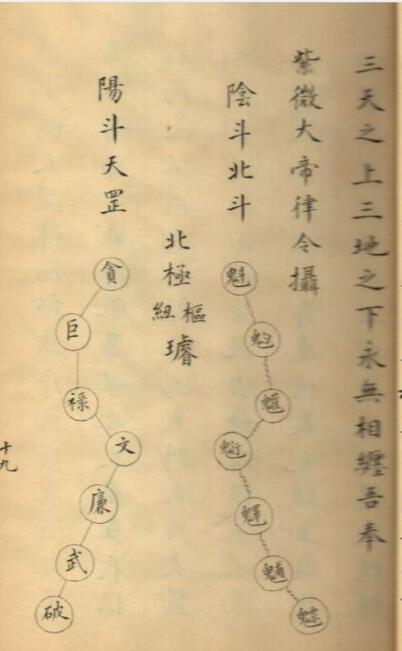 三天之上三地之下永無相纏吾奉
紫微大帝律令攝
陰斗北斗
魁
魓
魒
北極
樞
紐
璿
陽斗天罡
貪
巨
禄
文
廉
武
破
十九